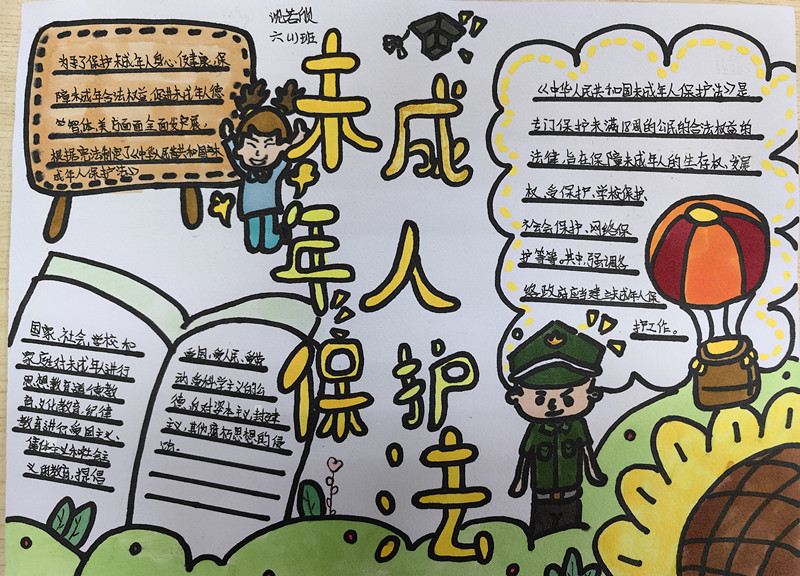 沈若微
六(1)班
未成年人保护法
为了保护未成年人身心健康,保
障未成年合法权益,促进未成年人德
智体、美方面面全面发展,
根据宪法制定了《中华人民共和国未
成年人保护法》
《中华人民共和国未成年人保护法》是
专门保护未满18周的公民的合法权益的
法律,旨在保障未成年人的生存权、发展
权、受保护、学校保护、
社会会保护、网络保
护等等。其中,强调各
级政府应当建立未成年人保
护工作。
国家、社会、学校和
家庭对未成年人进行
思想教育道德教
育、文化教育、纪律
教育进行爱国主义、
集体主义和社会主
义的教育,提倡
爱国、爱人民、爱劳
动、爱科学主义的公
德,反对资本主义,封建
主义,其他腐朽思想的侵